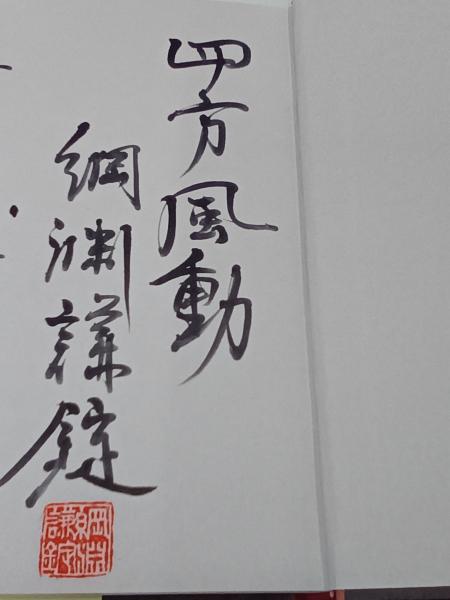 四方風動
綱淵謙錠
綱淵謙錠